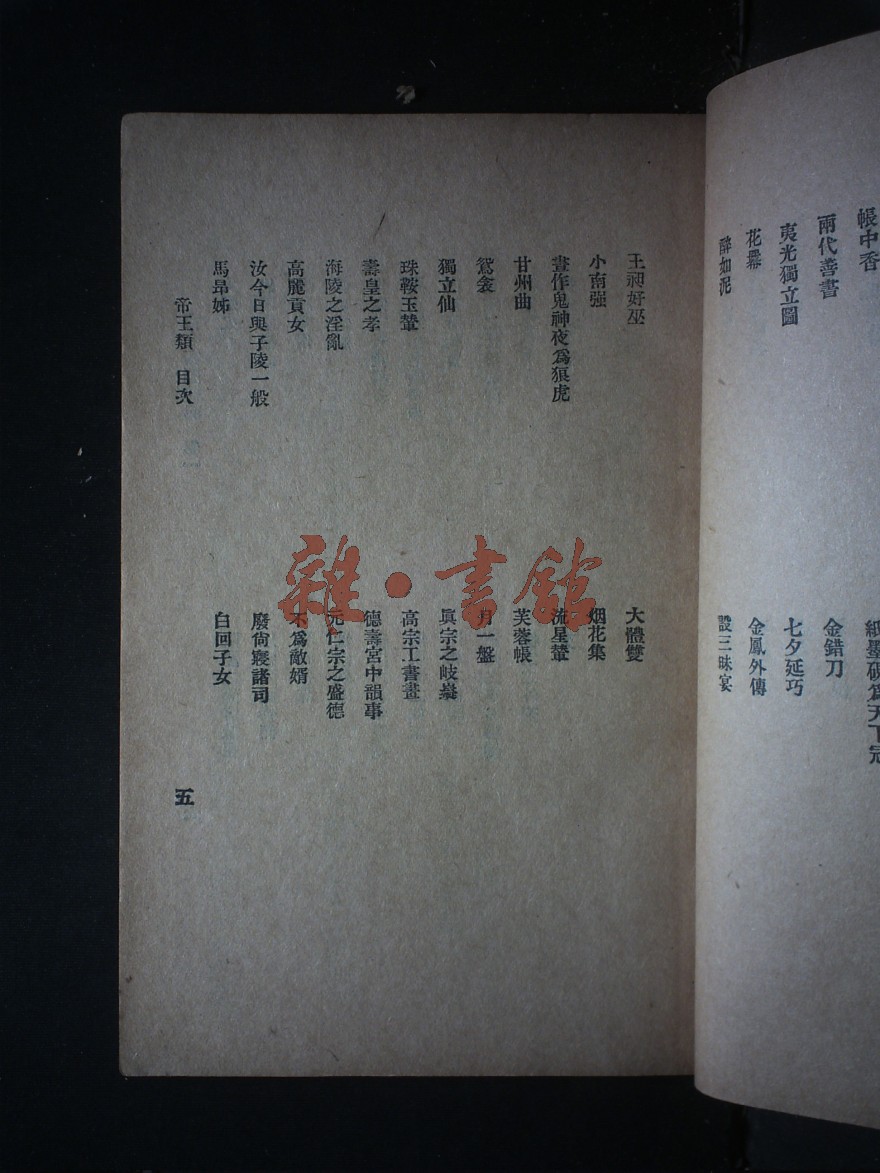 帳中香
紙墨硯爲天下冠
兩代善書
金錯刀
夷光獨立圖
七夕延巧
花
金鳳外傳
醉如泥
設三昧宴
王昶好巫
大體雙
小南强
烟花集
晝作鬼神夜爲狼虎
流星輦
甘州曲
芙蓉帳
鴛衾
月一盤
獨立仙
眞宗之岐嶷
珠鞍玉輦
高宗工書畫
壽皇之孝
德壽宮中韻事
海陵之淫亂
元仁宗之盛德
高麗貢女
不爲敵婿
汝今日與子陵一般
廢尙寢諸司
馬昂姊
白回子女
帝王類 目次
五
雜·書館